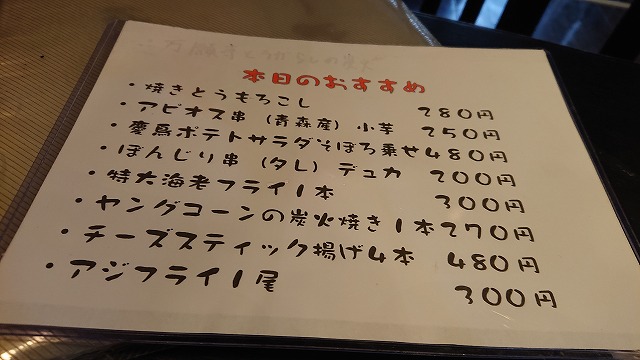 本日のおすすめ
・焼きとうもろこし 280円
・アピオス串 (青森産) 小芋 250円
・慶鳥ポテトサラダそぼろ乗せ480円
・ぼんじり串 (タレ) デュカ 200円
・特大海老フライ1本 300円
・ヤングコーンの炭火焼き1本270円
・チーズスティック揚げ4本 480円
・アジフライ1尾 300円